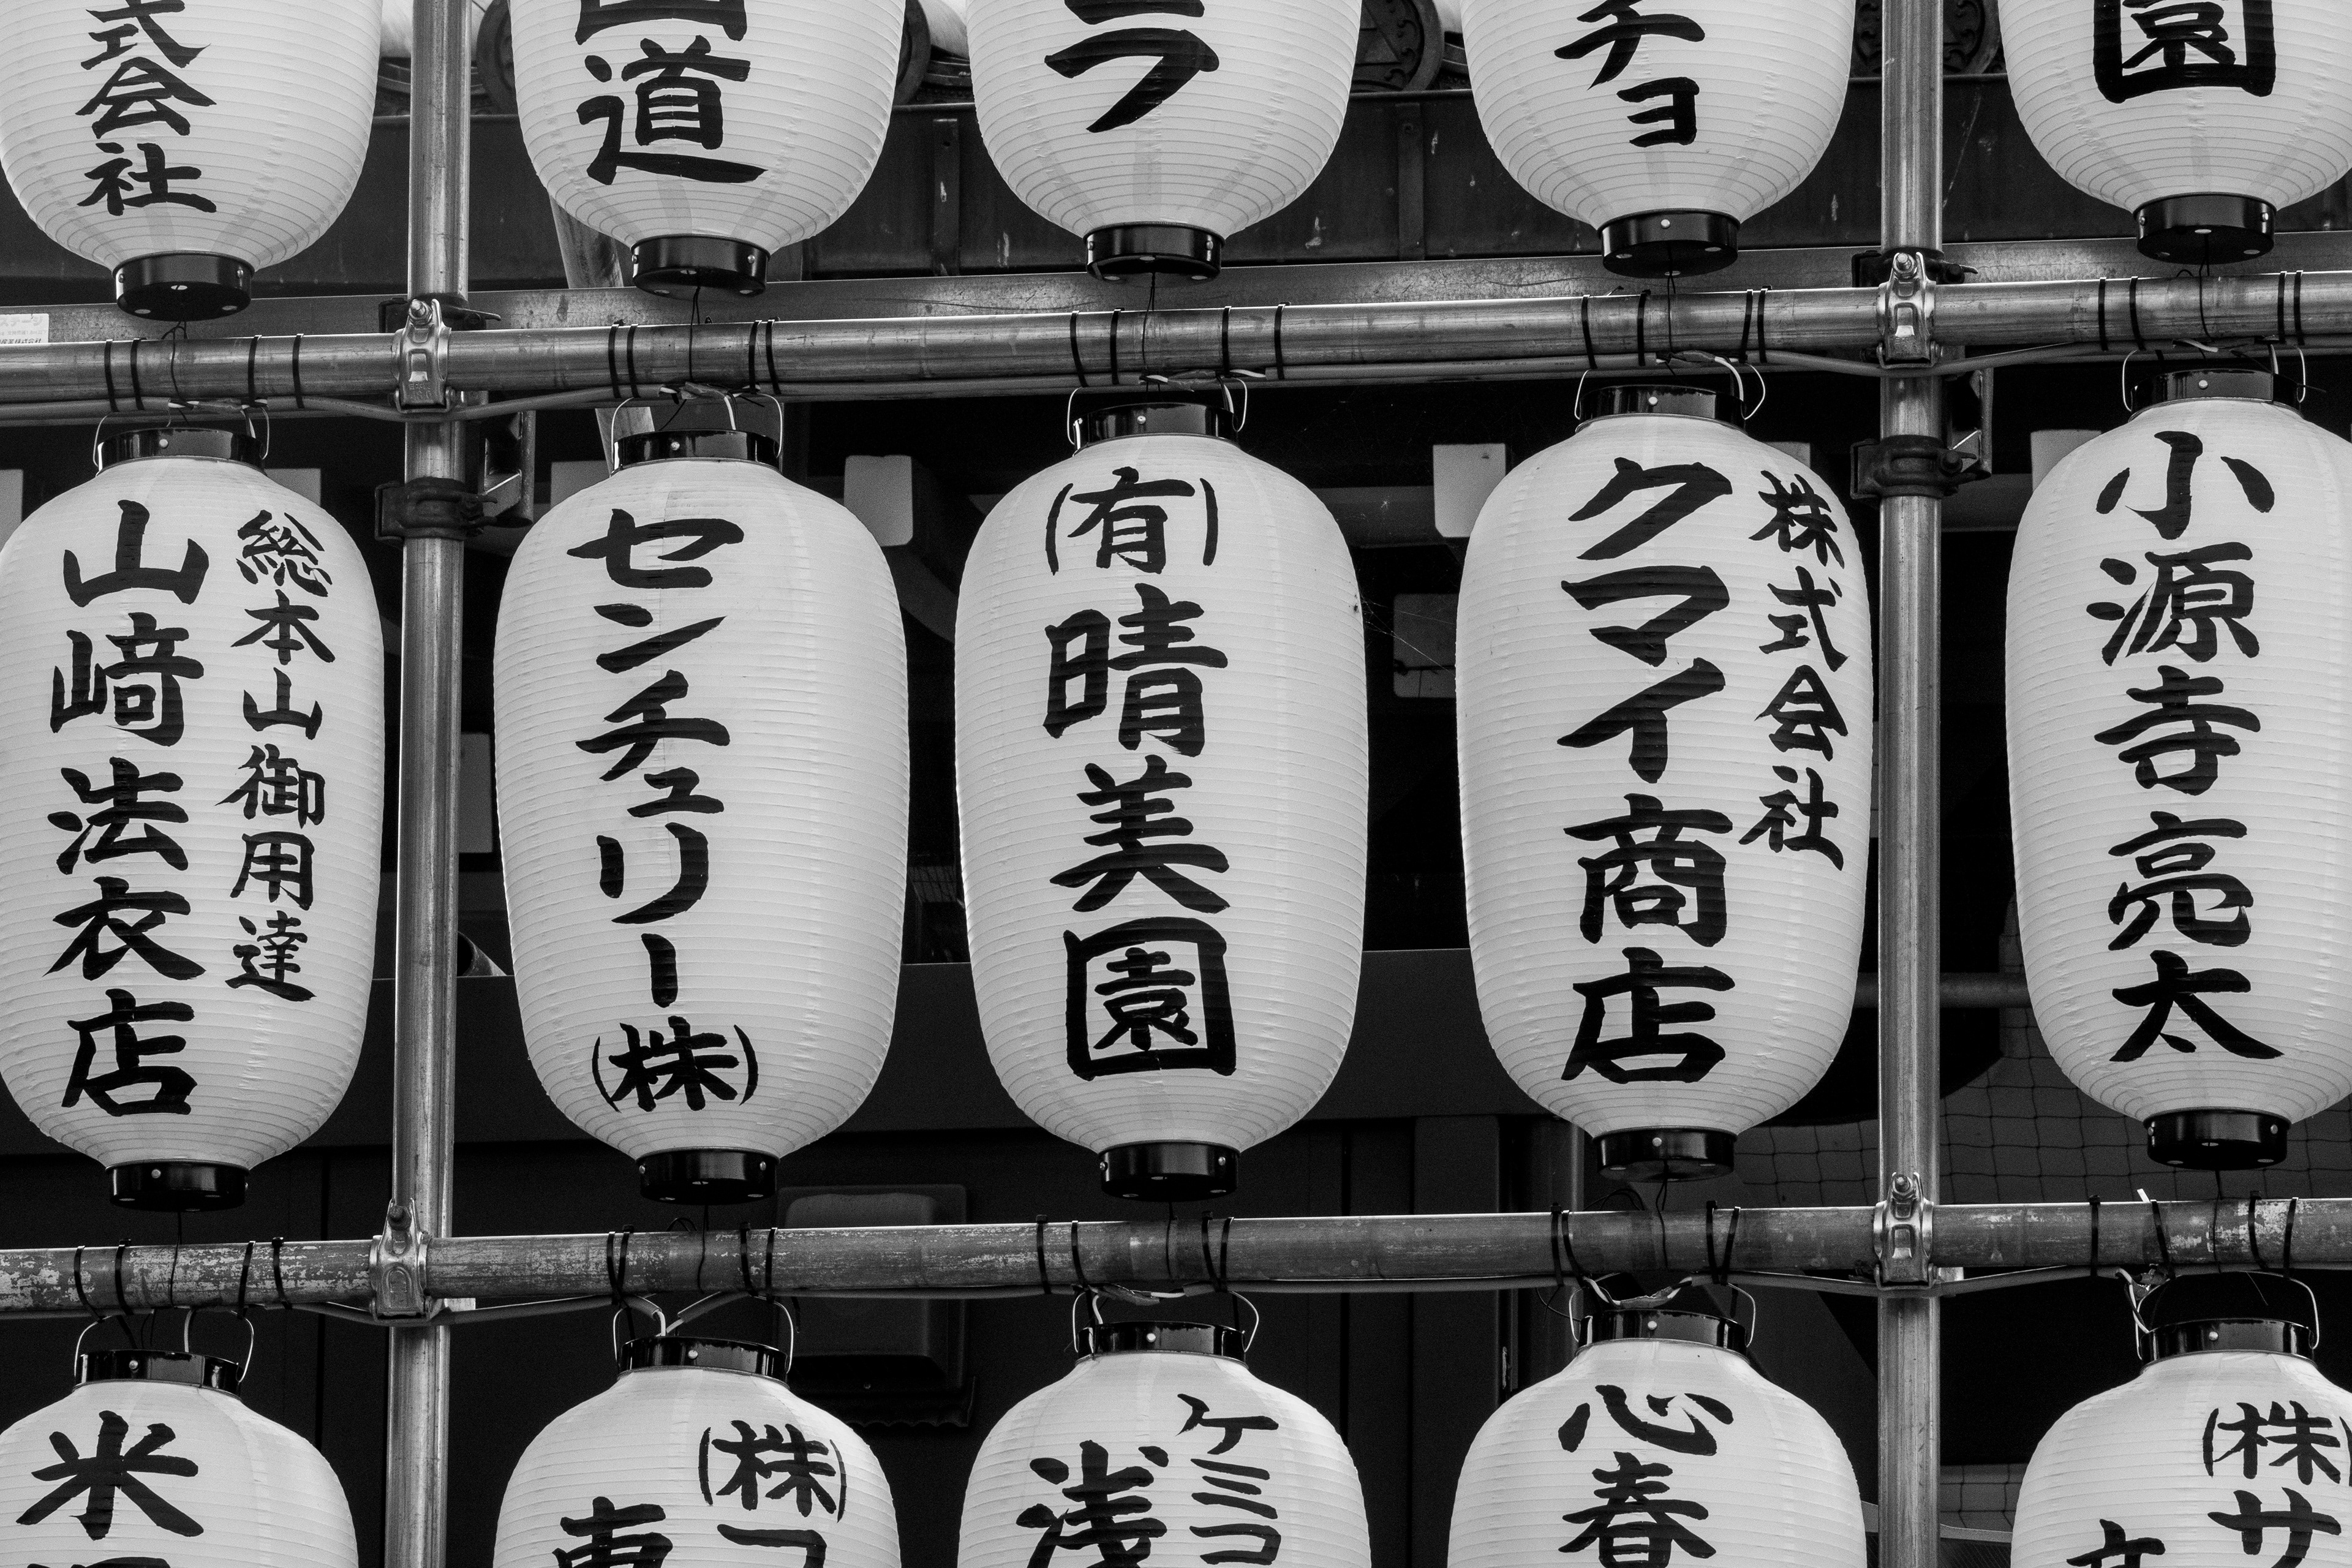 式会社
道
ラ
チョ
園
総本山御用達
山﨑法衣店
センチュリー㈱
㈲晴美園
株式会社
クマイ商店
小源寺亮太
米
㈱フ
東
ケミコ
浅
心春
㈱サ